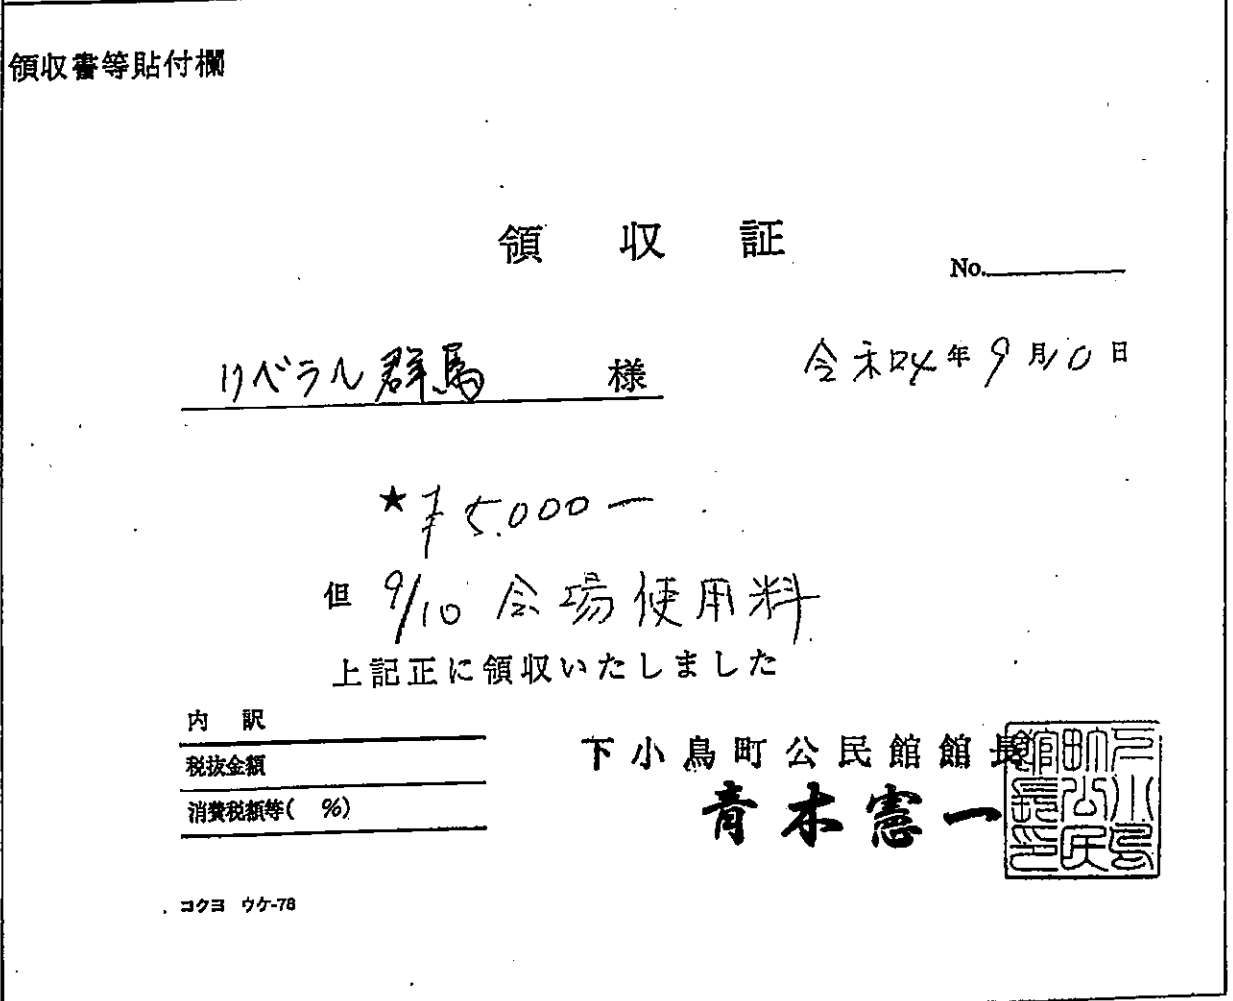 領収書等貼付欄
領収証
No.
リベラル群馬 様
令和4年9月10日
★ ¥5,000ー
但 9/10 会場使用料
上記正に領収いたしました
内訳
税抜金額
消費税額等( %)
下小鳥町公民館館長
青木憲一
下小鳥町公民館長之印
コクヨ ウケ-78